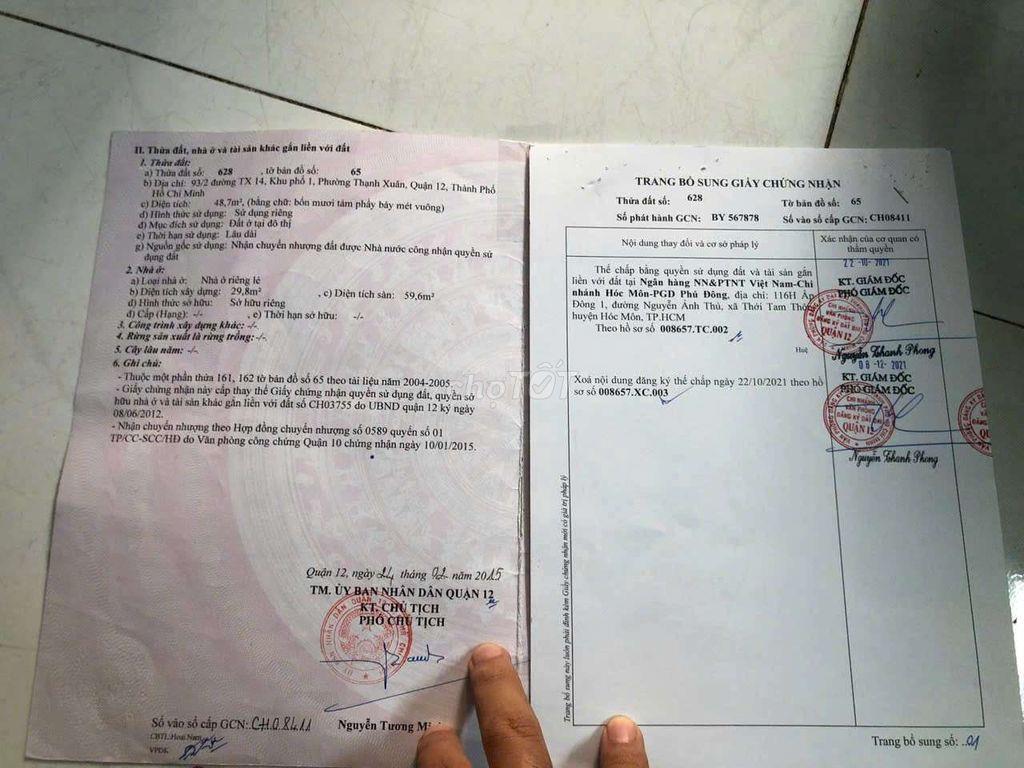 II. Thửa đất, nhà ở và tài sản khác gắn liền với đất
1. Thửa đất:
a) Thửa đất số: 628 , tờ bản đồ số: 65
b) Địa chỉ: 93/2 đường TX 14, Khu phố 1, Phường Thạnh Xuân, Quận 12, Thành Phố
Hồ Chí Minh
c) Diện tích: 48,7m², (bằng chữ: bốn mươi tám phẩy bảy mét vuông)
d) Hình thức sử dụng: Sử dụng riêng
đ) Mục đích sử dụng: Đất ở tại đô thị
e) Thời hạn sử dụng: Lâu dài
g) Nguồn gốc sử dụng: Nhận chuyển nhượng đất được Nhà nước công nhận quyền sử
dụng đất
2. Nhà ở:
a) Loại nhà ở: Nhà ở riêng lẻ
b) Diện tích xây dựng: 29,8m² , c) Diện tích sàn: 59,6m²
d) Hình thức sở hữu: Sở hữu riêng
đ) Cấp (Hạng): -/- , e) Thời hạn sở hữu: -/-
3. Công trình xây dựng khác: -/-
4. Rừng sản xuất là rừng trồng: -/-
5. Cây lâu năm: -/-
6. Ghi chú:
- Thuộc một phần thửa 161, 162 tờ bản đồ số 65 theo tài liệu năm 2004-2005.
- Giấy chứng nhận này cấp thay thế Giấy chứng nhận quyền sử dụng đất, quyền sở
hữu nhà ở và tài sản khác gắn liền với đất số CH03755 do UBND quận 12 ký ngày
08/06/2012.
- Nhận chuyển nhượng theo Hợp đồng chuyển nhượng số 0589 quyển số 01
TP/CC-SCC/HĐ do Văn phòng công chứng Quận 10 chứng nhận ngày 10/01/2015.
Quận 12, ngày 24 tháng 02 năm 2015
TM. ỦY BAN NHÂN DÂN QUẬN 12
KT. CHỦ TỊCH
PHÓ CHỦ TỊCH
Số vào sổ cấp GCN: CH08411
Nguyễn Tương
CBTL: Hoài Nam
VPĐK
TRANG BỔ SUNG GIẤY CHỨNG NHẬN
Thửa đất số: 628 Tờ bản đồ số: 65
Số phát hành GCN: BY 567878 Số vào sổ cấp GCN: CH08411
Nội dung thay đổi và cơ sở pháp lý
Xác nhận của cơ quan có
thẩm quyền
Thế chấp bằng quyền sử dụng đất và tài sản gắn
liền với đất tại Ngân hàng NN&PTNT Việt Nam-Chi
nhánh Hóc Môn-PGD Phủ Đông, địa chỉ: 116H Ấp
Đông 1, đường Nguyễn Ảnh Thủ, xã Thới Tam Thôn,
huyện Hóc Môn, TP.HCM
Theo hồ sơ số 008657.TC.002
Huệ
22-10-2021
KT. GIÁM ĐỐC
PHÓ GIÁM ĐỐC
CHI NHÁNH
VĂN PHÒNG
ĐĂNG KÝ ĐẤT ĐAI
QUẬN 12
Nguyễn Thanh Phong
Xoá nội dung đăng ký thế chấp ngày 22/10/2021 theo hồ
sơ số 008657.XC.003
08-12-2021
KT. GIÁM ĐỐC
PHÓ GIÁM ĐỐC
CHI NHÁNH
VĂN PHÒNG
ĐĂNG KÝ ĐẤT ĐAI
QUẬN 12
Nguyễn Thanh Phong
Trang bổ sung này luôn phải đính kèm Giấy chứng nhận mới có giá trị pháp lý
Trang bổ sung số: 01
chợTỐT